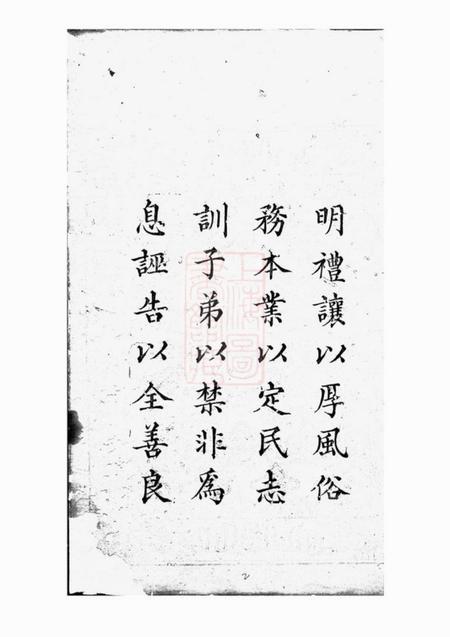 明禮讓以厚風俗
務本業以定民志
訓子弟以禁非為
息誣告以全善良
2